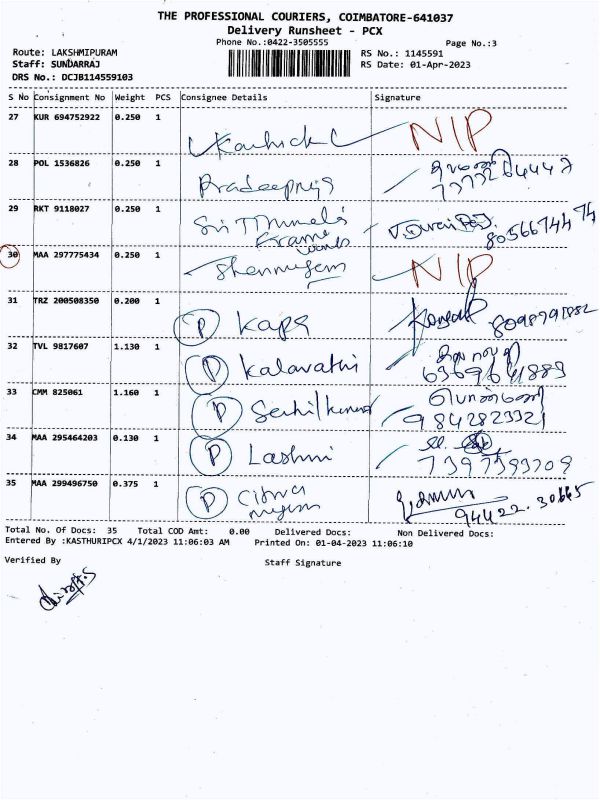 THE PROFESSIONAL COURIERS, COIMBATORE-641037
Delivery Runsheet - PCX
Phone No.:0422-3505555 Page No.:3
Route: LAKSHMIPURAM RS No.: 1145591
Staff: SUNDARRAJ RS Date: 01-Apr-2023
DRS No.: DCJB114559103
S No Consignment No Weight PCS Consignee Details Signature
27 KUR 694752922 0.250 1 NIP
28 POL 1536826 0.250 1 Pradeepriya
29 RKT 9118027 0.250 1 Sri Tirumala
Frame
works 8056674474
30 MAA 297775434 0.250 1 Shanmugam NIP
31 TRZ 200508350 0.200 1 P Kapa
32 TVL 9817607 1.130 1 P Kalavathi
33 CMM 825061 1.160 1 P Senthilkumar
9842823321
34 MAA 295464203 0.130 1 P Lashmi
7397393709
35 MAA 299496750 0.375 1 P
94422.30665
Total No. Of Docs: 35 Total COD Amt: 0.00 Delivered Docs: Non Delivered Docs:
Entered By :KASTHURIPCX 4/1/2023 11:06:03 AM Printed On: 01-04-2023 11:06:10
Verified By Staff Signature